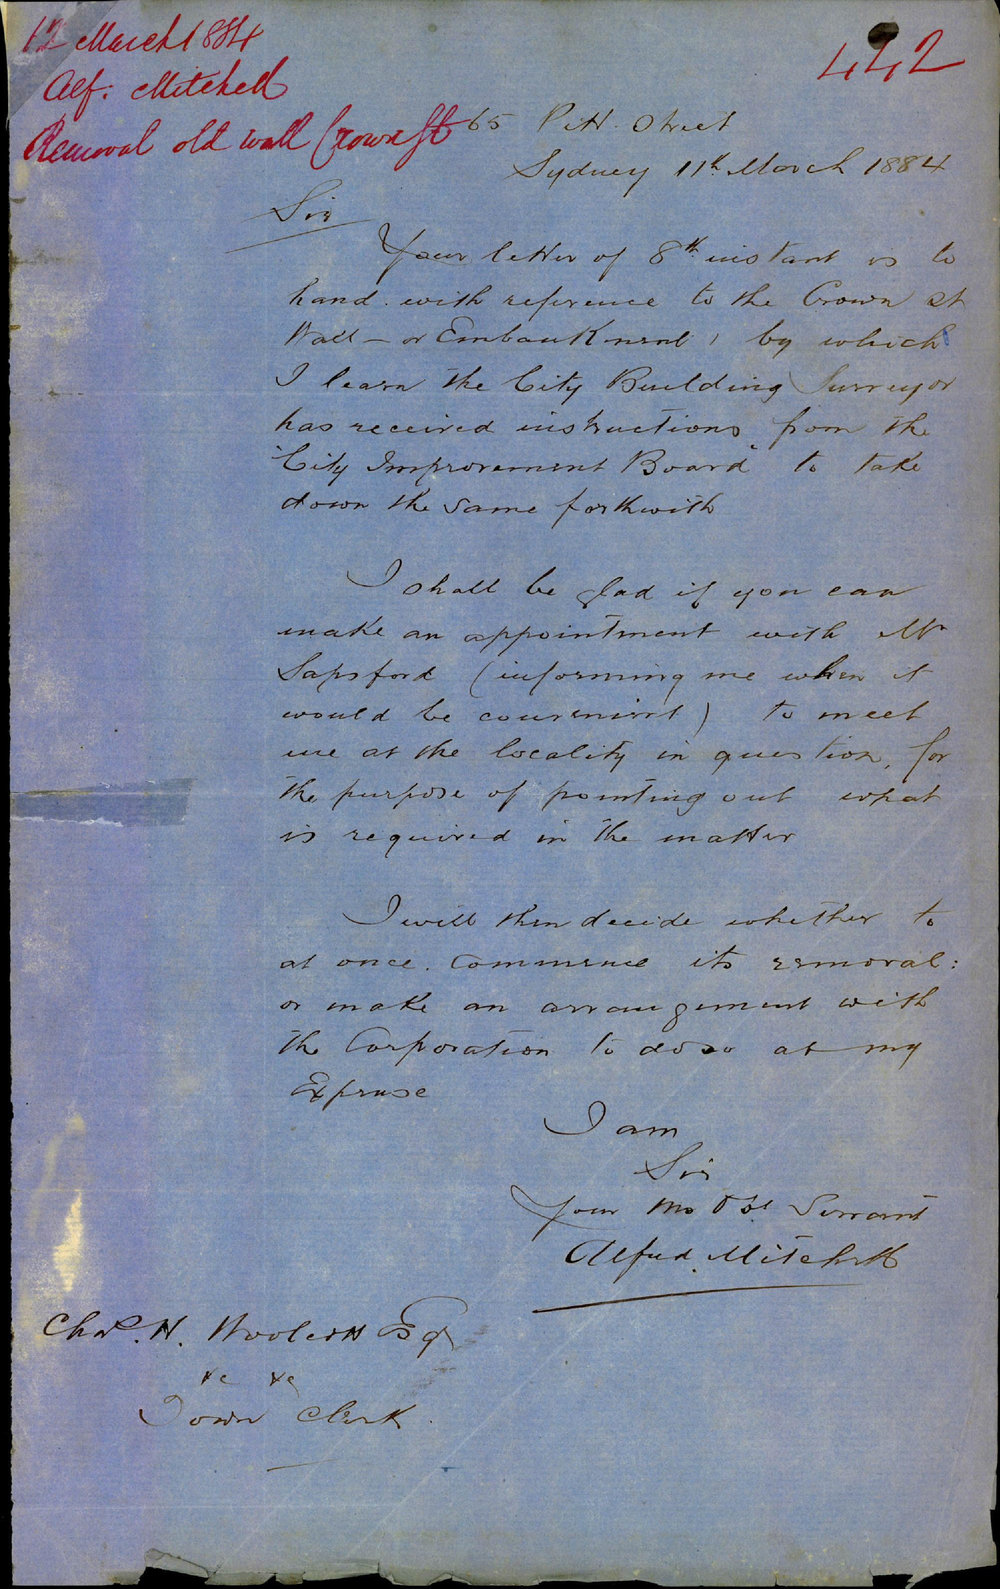 12 March 1884
Alf: Mitchell
Removal old wall Crown St
442
65 Pitt Street
Sydney 11th March 1884
Sir
Your letter of 8th instant is to
hand. with reference to the Crown St
Wall – or Embankment, by which
I learn the City Building Surveyor
has received instructions from the
"City Improvement Board" to take
down the same forthwith
I shall be glad if you can
make an appointment with Mr
Sapsford (informing me when it
would be convenient) to meet
me at the locality in question, for
the purpose of pointing out what
is required in the matter
I will then decide whether to
at once. commence its removal:
or make an arrangement with
the Corporation to do so at my
Expense
I am
Sir
Your Mo Obt Servant
Alfred Mitchell
Chas. H. Woolcott Esq
&c &c
Town Clerk.